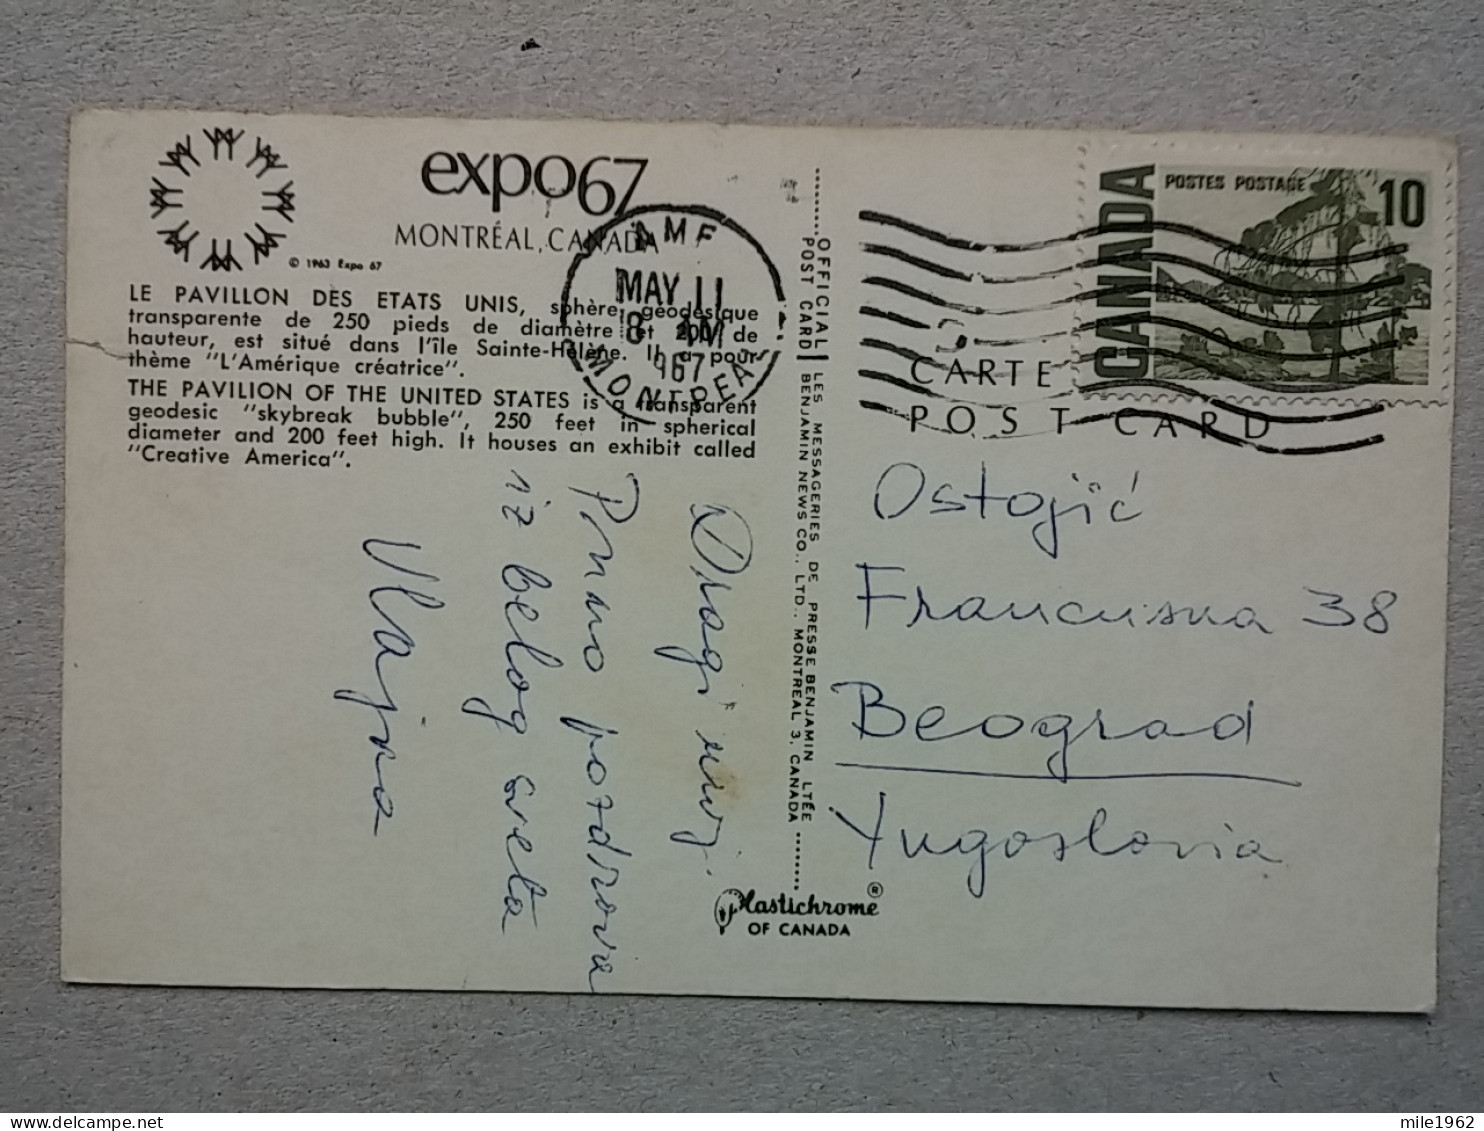 expo67
MONTRÉAL, CANADA
© 1963 Expo 67
LE PAVILLON DES ETATS UNIS, sphère géodésique
transparente de 250 pieds de diamètre et 200 de
hauteur, est situé dans l'île Sainte-Hélène. Il a pour
thème "L'Amérique créatrice".
THE PAVILION OF THE UNITED STATES is a transparent
geodesic "skybreak bubble", 250 feet in spherical
diameter and 200 feet high. It houses an exhibit called
"Creative America".
AMF
MAY 11
8 PM
1967
MONTREAL
Dragi moj.
Puno pozdrava
iz belog sveta
Vlajna
OFFICIAL
POST CARD
LES MESSAGERIES DE PRESSE BENJAMIN LTÉE
BENJAMIN NEWS CO., LTD., MONTREAL 3, CANADA
Plastichrome®
OF CANADA
CANADA
POSTES POSTAGE
10
CARTE
POST CARD
Ostojić
Francuska 38
Beograd
Yugoslovia
mile1962